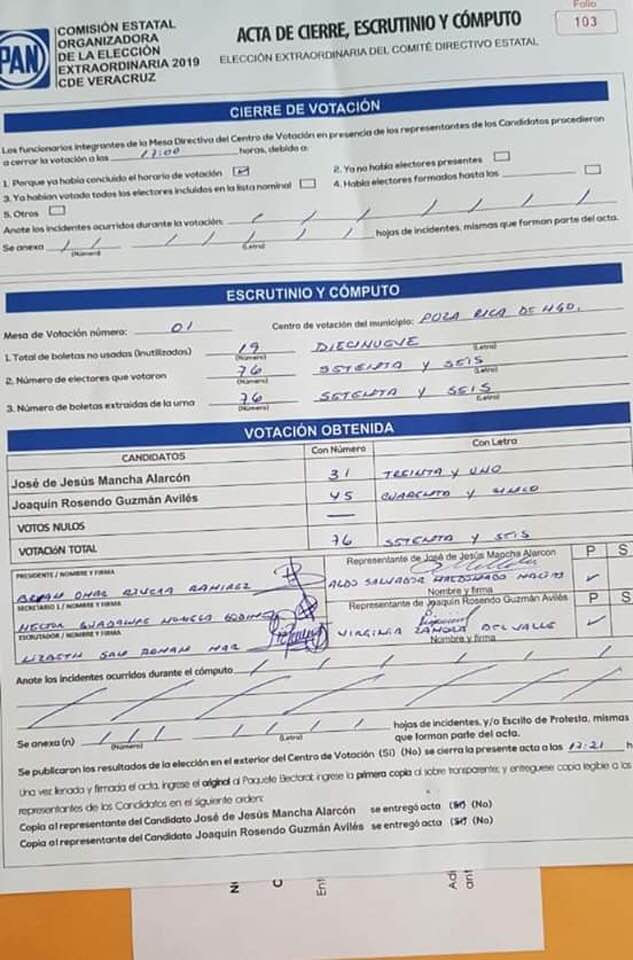 Folio
103
PAN
COMISIÓN ESTATAL
ORGANIZADORA
DE LA ELECCIÓN
EXTRAORDINARIA 2019
CDE VERACRUZ
ACTA DE CIERRE, ESCRUTINIO Y CÓMPUTO
ELECCIÓN EXTRAORDINARIA DEL COMITÉ DIRECTIVO ESTATAL
CIERRE DE VOTACIÓN
Los funcionarios integrantes de la Mesa Directiva del Centro de Votación en presencia de los representantes de los Candidatos procedieron
a cerrar la votación a las 17:00 horas, debido a:
1. Porque ya había concluido el horario de votación
2. Ya no había electores presentes
3. Ya habían votado todos los electores incluidos en la lista nominal
4. Había electores formados hasta las
5. Otros
Anote los incidentes ocurridos durante la votación:
Se anexa hojas de incidentes, mismas que forman parte del acta.
(Número) (Letra)
ESCRUTINIO Y CÓMPUTO
Mesa de Votación número: 01 Centro de votación del municipio: POZA RICA DE HGO.
1. Total de boletas no usadas (inutilizadas) 19 DIECINUEVE
(Número) (Letra)
2. Número de electores que votaron 76 SETENTA Y SEIS
(Número) (Letra)
3. Número de boletas extraídas de la urna 76 SETENTA Y SEIS
(Número) (Letra)
VOTACIÓN OBTENIDA
CANDIDATOS Con Número Con Letra
José de Jesús Mancha Alarcón 31 TREINTA Y UNO
Joaquín Rosendo Guzmán Avilés 45 CUARENTA Y CINCO
VOTOS NULOS —
VOTACIÓN TOTAL 76 SETENTA Y SEIS
PRESIDENTE / NOMBRE Y FIRMA
BRYAN OMAR RIVERA RAMIREZ
SECRETARIO 1 / NOMBRE Y FIRMA
HECTOR GUADALUPE
ESCRUTADOR / NOMBRE Y FIRMA
LIZBETH SAN ROMAN MAR
Representante de José de Jesús Mancha Alarcón P S
ALDO SALVADOR MALDONADO
Nombre y firma
Representante de Joaquín Rosendo Guzmán Avilés P S
VIRGINIA ZAMORA DEL VALLE
Nombre y firma
Anote los incidentes ocurridos durante el cómputo
Se anexa(n) hojas de incidentes, y/o Escrito de Protesta, mismas
(Número) (Letra) que forman parte del acta.
Se publicaron los resultados de la elección en el exterior del Centro de Votación (Si) (No) se cierra la presente acta a las 17:21 h
Una vez llenada y firmada el acta, ingrese el original al Paquete Electoral; ingrese la primera copia al sobre transparente; y entréguese copia legible a los
representantes de los Candidatos en el siguiente orden:
Copia al representante del Candidato José de Jesús Mancha Alarcón se entregó acta (Si) (No)
Copia al representante del Candidato Joaquín Rosendo Guzmán Avilés se entregó acta (Si) (No)